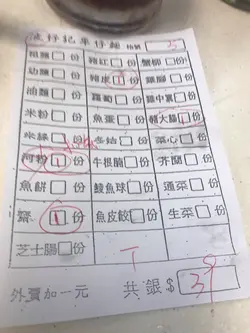 仔記車仔麵 枱號 25
粗麵□份 豬紅□份 蟹柳□份
幼麵□份 豬皮1份 雞腳□份
油麵□份 蘿蔔□份 雞中翼□份
米粉□份 魚蛋□份 大腸1份
米線□份 冬菇□份 菜心□份
河粉1份 牛根腩□份 芥蘭□份
魚餅□份 鯪魚球□份 通菜□份
齋1份 魚皮餃□份 生菜□份
芝士腸□份
T
外賣加一元 共銀$ 39